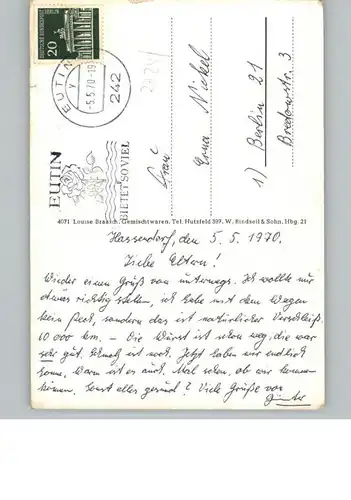 DEUTSCHE BUNDESPOST BERLIN
20
EUTIN
-5.5.70-19
242
EUTIN
BIETET SO VIEL
Frau
Erna Nickel
1) Berlin 21
Bredowstr. 3
4071 Louise Braasch, Gemischtwaren, Tel. Hutzfeld 389. W. Bindseil & Sohn, Hbg. 21
Hassendorf, den 5. 5. 1970.
Liebe Eltern!
Wieder einen Gruß von unterwegs. Ich wollte nur
etwas richtig stellen, ich habe mit dem Wagen
kein Pech, sondern das ist natürlicher Verschleiß.
60 000 km. – Die Wurst ist schon weg, die war
sehr gut. Schmalz ist noch. Jetzt haben wir endlich
Sonne. Warm ist es auch. Mal sehen, ob wir kommen
können. Sonst alles gesund? Viele Grüße von
Günter